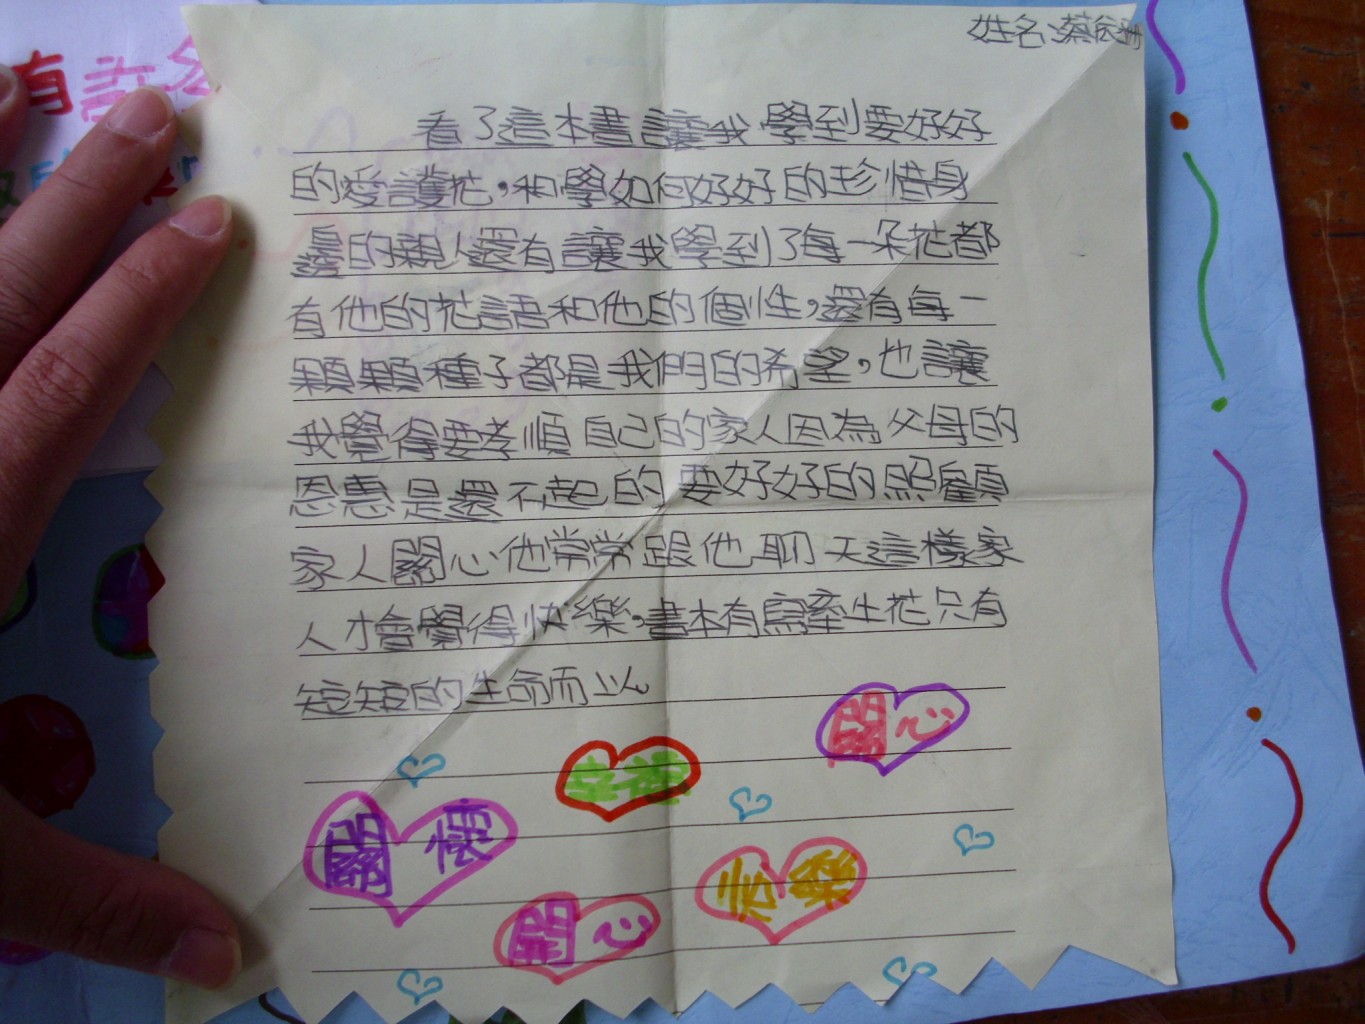 有許多
姓名:蔡
看了這本書讓我學到要好好
的愛護花,和學如何好好的珍惜身
邊的親人還有讓我學到了每一朵花都
有他的花語和他的個性,還有每一
顆顆種子都是我們的希望,也讓
我覺得要孝順自己的家人因為父母的
恩惠是還不起的要好好的照顧
家人關心他常常跟他聊天這樣家
人才會覺得快樂,書本有寫牽牛花只有
短短的生命而以。
關心
幸福
關懷
快樂
關心